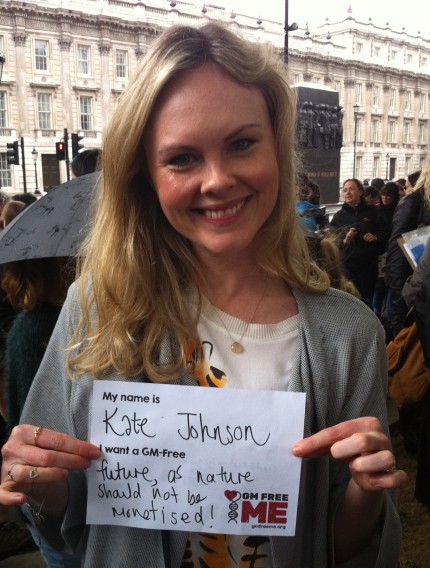 My name is
Kate Johnson
I want a GM-Free
future, as nature
should not be
monetised!
GM FREE
ME
gmfreeme.org